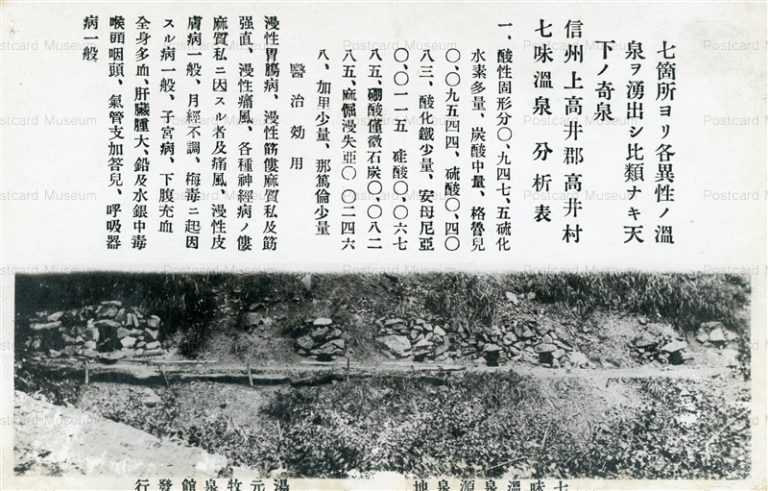 七箇所ヨリ各異性ノ溫
泉ヲ湧出シ比類ナキ天
下ノ奇泉
信州上高井郡高井村
七味溫泉分析表
一、酸性固形分〇、九四七、五硫化
水素多量、炭酸中量、格魯兒
〇、〇九五四四、硫酸〇、四〇
八三、酸化鐵少量、安母尼亞
〇、〇一一五 硅酸〇、〇六七
八五、硼酸僅微石炭〇、〇八二
八五、麻倔涅失亞〇、〇二四六
八、加里少量、那篤倫少量
醫治効用
漫性胃腸病、漫性筋僂麻質私及筋
强直、漫性痛風、各種神經病ノ僂
麻質私ニ因スル者及痛風、漫性皮
膚病一般、月經不調、梅毒ニ起因
スル病一般、子宮病、下腹充血
全身多血、肝臟腫大、鉛及水銀中毒
喉頭咽頭、氣管支加答兒、呼吸器
病一般
七味溫泉源泉地
湯元牧泉館發行
Postcard Museum